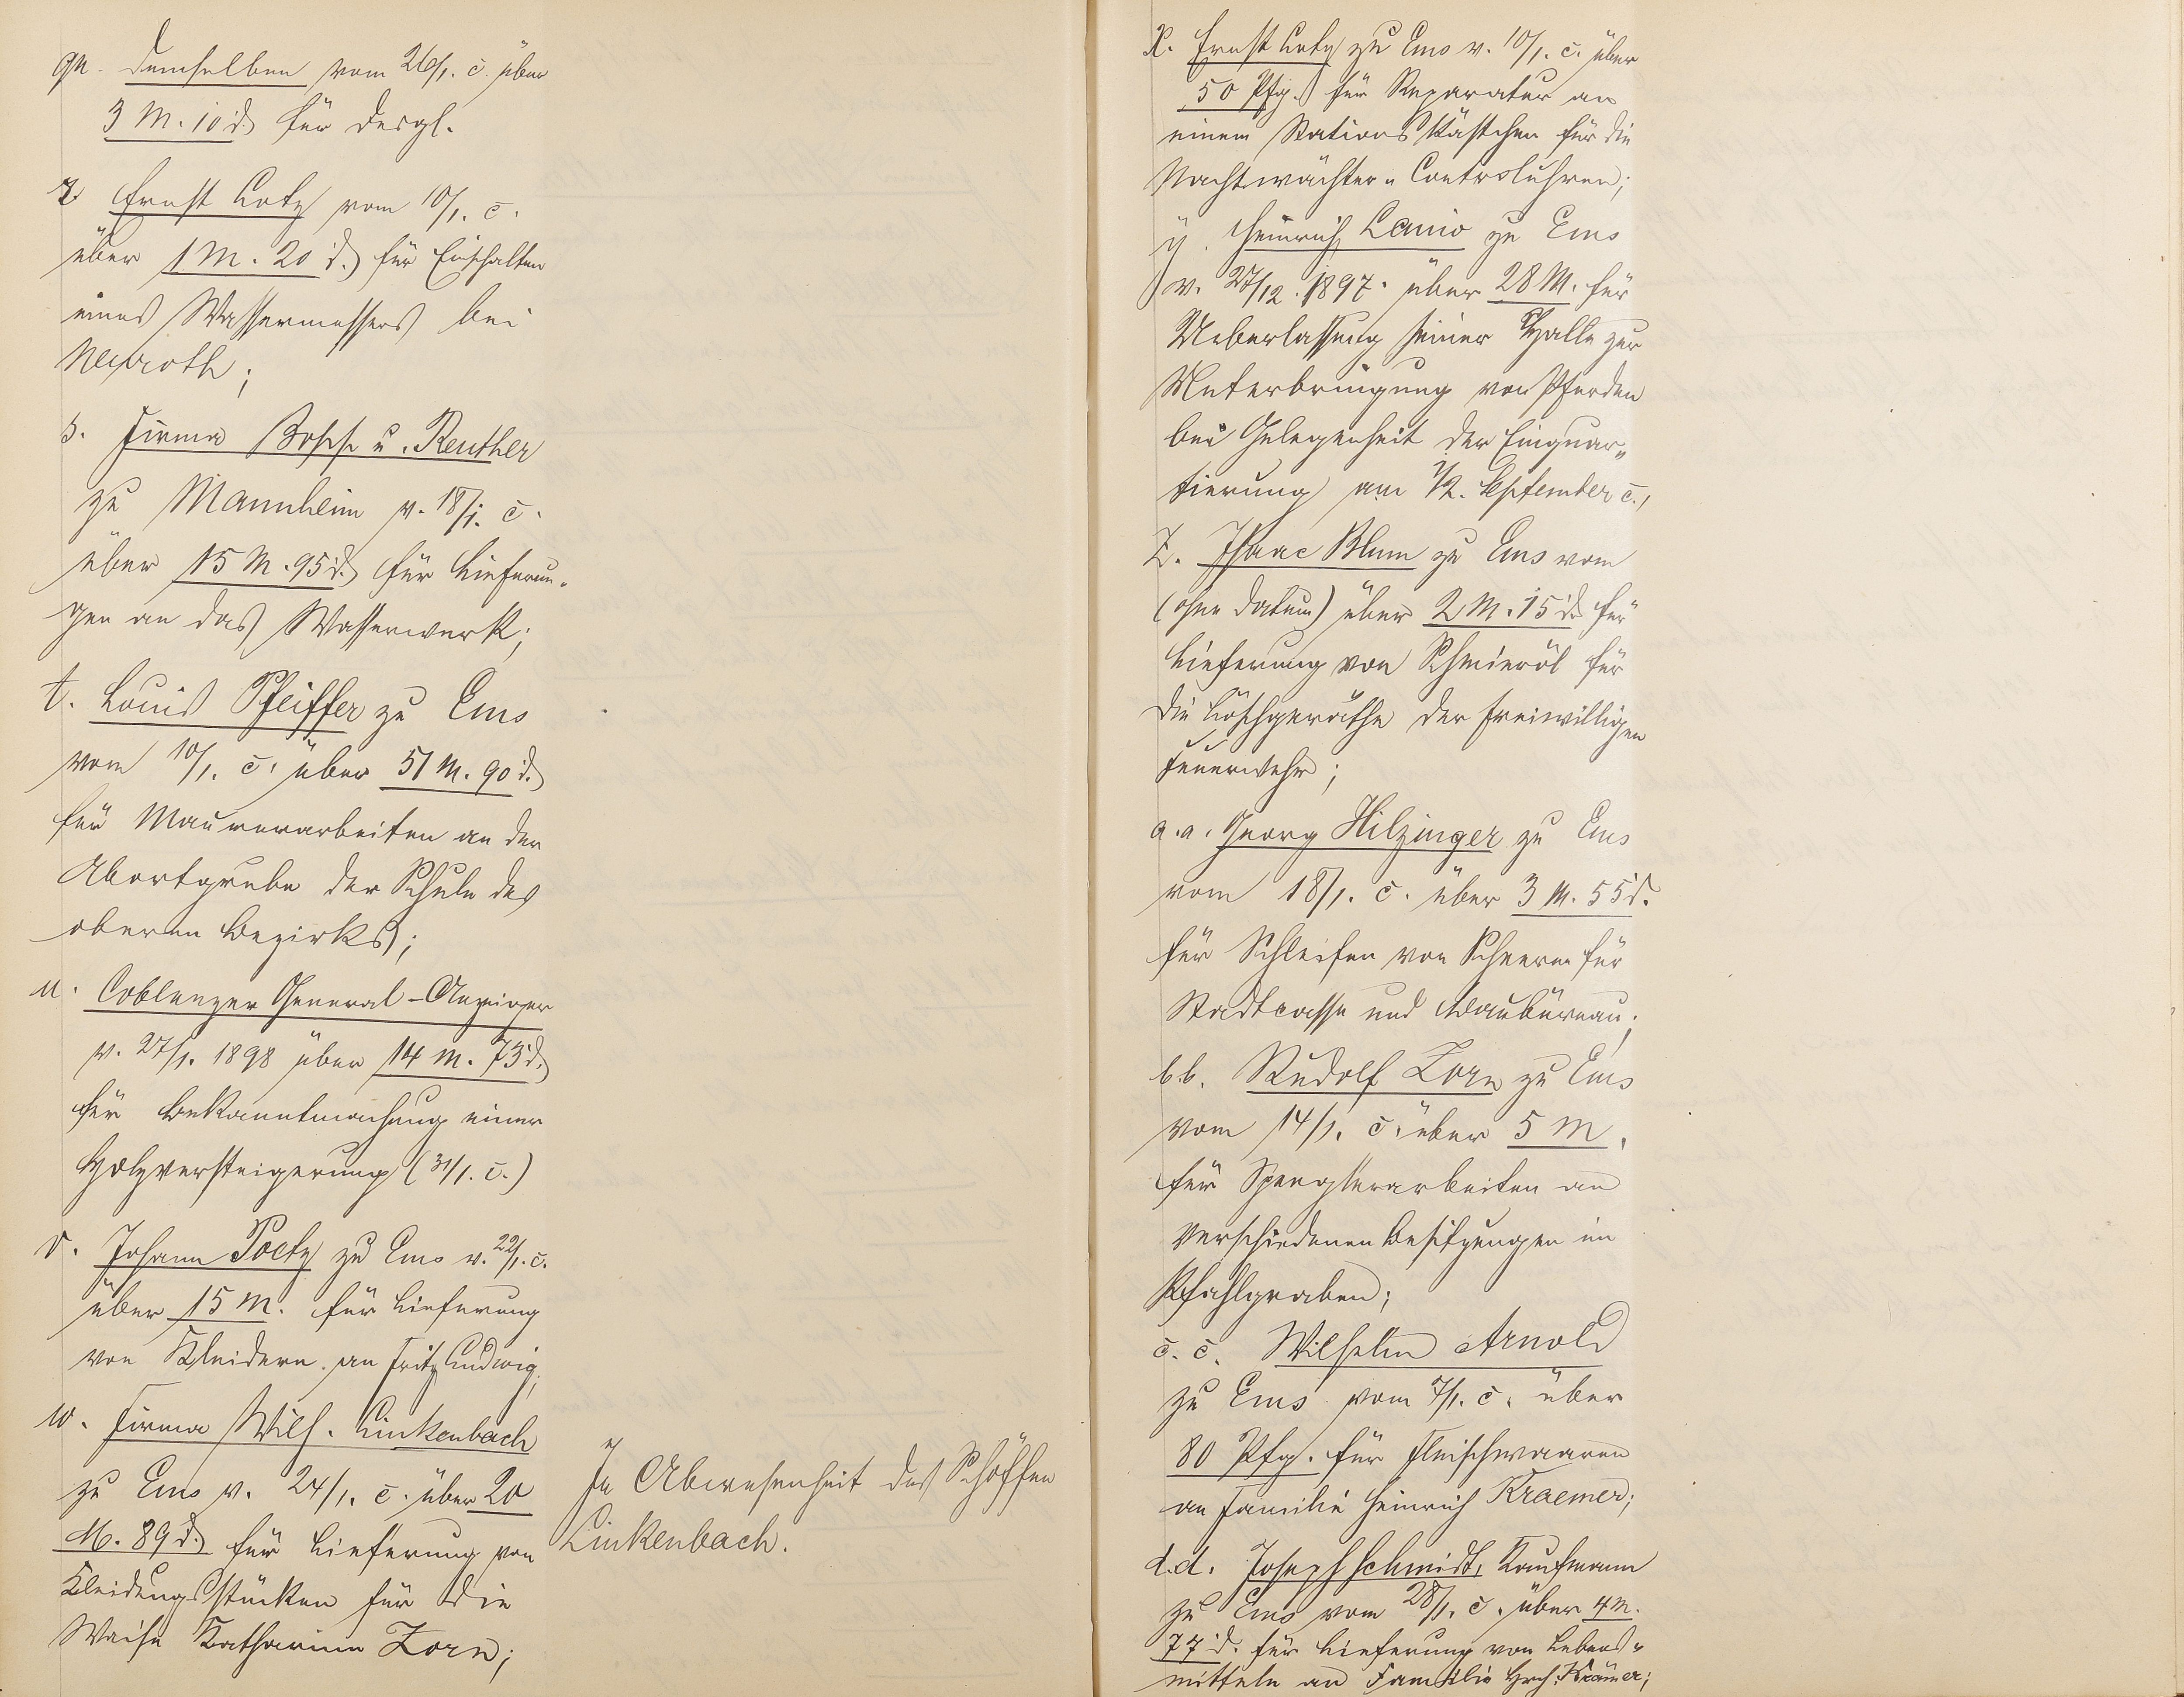 qu. demselben vom 26/1. c. über
3 M. 10 d. für desgl.
r. Ernst Loty vom 10/1. c.
über 1 M. 20 d. für Einschalten
eines Wassermessers bei
s. Firma Bopp u. Reuther
zu Mannheim v. 18/1. c.
über 15 M. 95 d. für Lieferun-
gen an das Wasserwerk;
t. Louis Pfeiffer zu Ems
vom 10/1. c. über 51 M. 90 d.
für Maurerarbeiten an der
Abortgrube der Schule des
oberen Bezirks;
u. Coblenzer General-Anzeiger
v. 27/1. 1898 über 14 M. 73 d.
für Bekanntmachung einer
Holzversteigerung (31/1. c.)
v. Johann Poety zu Ems v. 22/1. c.
über 15 M. für Lieferung
von Kleidern an Fritz Ludwig;
w. Firma Wilh. Linkenbach
zu Ems v. 24/1. c. über 20
M. 89 d. für Lieferung von
Kleidungsstücken für die
Waise Katharina Zorn;
In Abwesenheit des Schöffen
Linkenbach.
x. Ernst Loty zu Ems v. 10/1. c. über
50 Pfg. für Reparatur an
einem Stations Kästchen für die
Nachtwächter-Controluhren;
y. Heinrich Canio zu Ems
v. 27/12. 1897. über 28 M. für
Ueberlassung seiner Halle zur
Unterbringung von Pferden
bei Gelegenheit der Einquar-
tierung am 1/2. September c.,
z. Isaac Blum zu Ems vom
(ohne Datum) über 2 M. 15 d. für
Lieferung von Schmieröl für
die Löschgeräthe der freiwilligen
Feuerwehr;
a.a. Georg Hilzinger zu Ems
vom 18/1. c. über 3 M. 55 d.
für Schleifen von Scheeren für
Stadtcasse und Baubüreau;
b.b. Rudolf Zorn zu Ems
vom 14/1. c. über 5 M.
für Spenglerarbeiten an
verschiedenen Besitzungen im
Pfahlgraben;
c.c. Wilhelm Arnold
zu Ems vom 7/1. c. über
80 Pfg. für Fleischwaaren
an Familie Heinrich Kraemer;
d.d. Joseph Schmidt, Kaufmann
zu Ems vom 28/1. c. über 4 M.
77 d. für Lieferung von Lebens-
mitteln an Familie Hrch. Krämer;